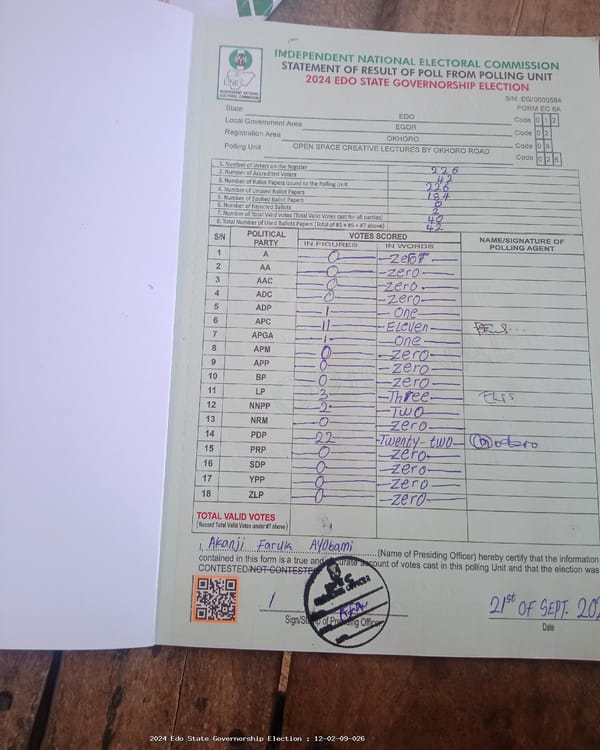 INDEPENDENT NATIONAL ELECTORAL COMMISSION
STATEMENT OF RESULT OF POLL FROM POLLING UNIT
2024 EDO STATE GOVERNORSHIP ELECTION
S/N: EG/0000584
FORM EC 8A
State EDO Code 0 1 2
Local Government Area EGOR Code 0 2
Registration Area OKHORO Code 0 9
Polling Unit OPEN SPACE CREATIVE LECTURES BY OKHORO ROAD Code 0 2 6
1. Number of Voters on the Register 226
2. Number of Accredited Voters 42
3. Number of Ballot Papers Issued to the Polling Unit 226
4. Number of Unused Ballot Papers 184
5. Number of Spoiled Ballot Papers 0
6. Number of Rejected Ballots 2
7. Number of Total Valid Votes (Total Valid Votes cast for all parties) 40
8. Total Number of Used Ballots Papers (Total of #5 + #6 + #7 above) 42
S/N POLITICAL PARTY VOTES SCORED NAME/SIGNATURE OF POLLING AGENT
IN FIGURES IN WORDS
1 A 0 zero
2 AA 0 zero
3 AAC 0 zero
4 ADC 0 zero
5 ADP 1 one
6 APC 11 Eleven
7 APGA 1 one
8 APM 0 zero
9 APP 0 zero
10 BP 0 zero
11 LP 3 Three
12 NNPP 2 Two
13 NRM 0 zero
14 PDP 22 Twenty-two
15 PRP 0 zero
16 SDP 0 zero
17 YPP 0 zero
18 ZLP 0 zero
TOTAL VALID VOTES
(Record Total Valid Votes under #7 above)
I, Akanji Faruk Ayobami (Name of Presiding Officer) hereby certify that the information
contained in this form is a true and accurate account of votes cast in this polling Unit and that the election was
CONTESTED/NOT CONTESTED
21st OF SEPT. 20
Sign/Stamp of Presiding Officer
Date
2024 Edo State Governorship Election : 12-02-09-026